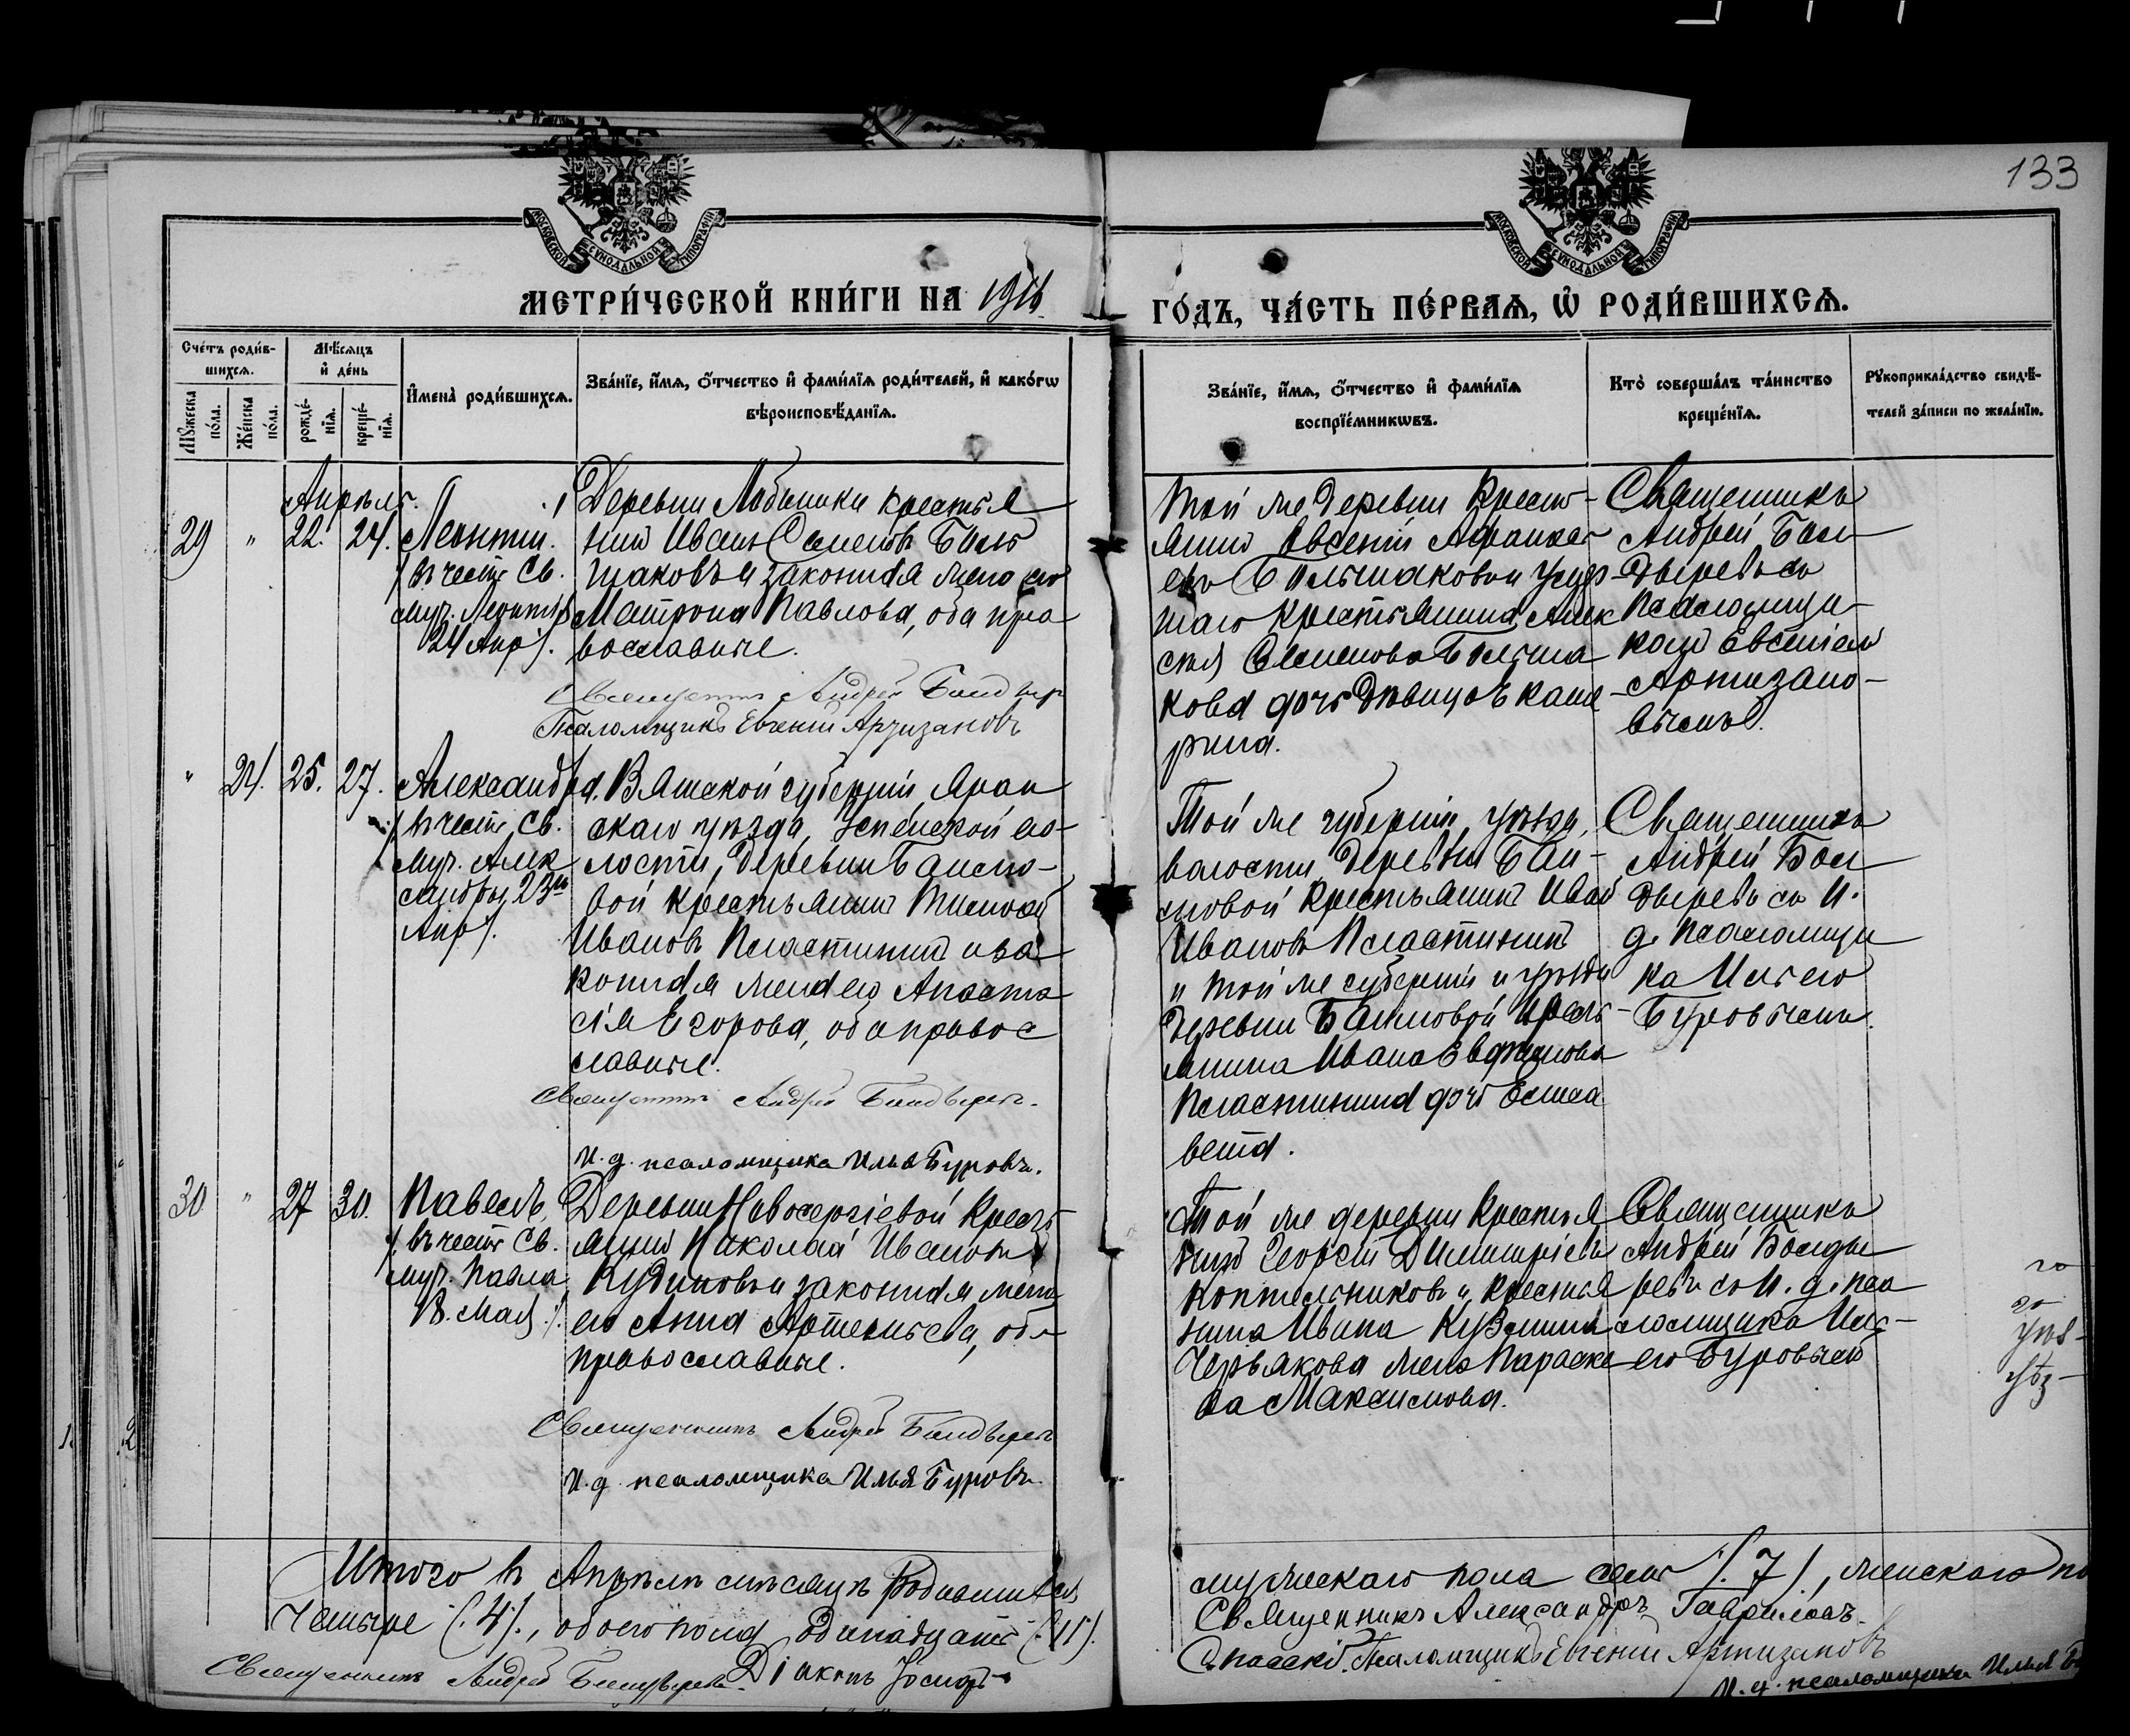 133
МОСКОВСКОЙ СѴНОДАЛЬНОЙ ТИПОГРАФІИ
МОСКОВСКОЙ СѴНОДАЛЬНОЙ ТИПОГРАФІИ
МЕТРИ́ЧЕСКОЙ КНИ́ГИ НА 1916
ГО́ДЪ, ЧА́СТЬ ПЕ́РВАѦ, Ѽ РОДИ́ВШИХСѦ.
Сче́тъ роди́в-
шихсѧ.
Мꙋ́жеска
по́ла.
Же́нска
по́ла.
Мѣ́сѧцъ
и҆ де́нь
рожде́-
нїѧ.
креще́-
нїѧ.
И҆мена̀ роди́вшихсѧ.
Зва́нїе, и҆́мѧ, ѻ҆́тчество и҆ фами́лїѧ роди́телей, и҆ како́гѡ
вѣроисповѣ́данїѧ.
Зва́нїе, и҆́мѧ, ѻ҆́тчество и҆ фами́лїѧ
воспрїе́мникѡвъ.
Кто̀ соверша́лъ та́инство
креще́нїѧ.
Рꙋкоприкла́дство свидѣ́-
телей за́писи по жела́нїю.
Апрѣль.
29 " 22. 24. Леонтій.
/въ честь Св.
муч. Леонтія
24 Апр/.
Деревни Лобанихи крестья
нинъ Иванъ Семеновъ Боль
шаковъ и законная жена его
Матрона Павлова, оба пра
вославные.
Священникъ Андрей Болдырев
Псаломщикъ Евгеній Артизановъ
Той же деревни Крестъ-
янинъ Авсеній Афанась
евъ Большаковъ и умер-
шаго крестьянина Алек
сѣя Семенова Больша
кова дочь Дѣвица Екате-
рина.
Священникъ
Андрей Бол
дыревъ съ
Псаломщи-
комъ Евгеніемъ
Артизано-
вымъ.
" 24. 25. 27. Александра.
/въ честь Св.
муч. Алек
сандры 23го
Апр/.
Вятской губерніи, Яран
скаго уѣзда, Успенской во-
лости, Деревни Баимо-
вой Крестьянинъ Тимофей
Ивановъ Пластининъ и за
конная жена его Анаста
сія Егорова, оба правос
лавные.
Священникъ Андрей Болдыревъ.
И. д. псаломщика Илья Буровъ.
Той же губерніи, уѣзда,
волости, Деревни Баи-
мовой Крестьянинъ Иванъ
Ивановъ Пластининъ
и той же губерніи и уѣзда
Деревни Баимовой Кресть-
янина Ивана Евдокимова
Пластинина дочь Елиса
вета.
Священникъ
Андрей Бол
дыревъ съ И.
д. Псаломщи
ка Ильею
Буровымъ.
30 " 27 30. Павелъ,
/въ честь Св.
муч. Павла
18. Мая/.
Деревни Новосергіевой Кресть
янинъ Николай Ивановъ
Кудиновъ и законная жена
его Анна Артемьева, оба
православные.
Священникъ Андрей Болдыревъ
И. д. псаломщика Илья Буровъ.
Той же деревни Крестья
нинъ Георгій Димитріевъ
Коптельниковъ и Крестья
нина Ивана Кузьмина
Червякова жена Параске
ва Максимова.
Священникъ
Андрей Болды
ревъ съ И. д. пса
ломщика Иль-
ею Буровымъ
Итого въ Апрѣлѣ мѣсяцѣ Родившихся
мужескаго пола семь /.7/., женскаго по
Четыре /.4/., обоего пола одинадцать /.11/.
Священникъ Александръ Гавриловъ.
Священникъ Андрей Болдыревъ. Діаконъ
Спасскій. Псаломщикъ Евгеній Артизановъ
И. д. псаломщика Илья